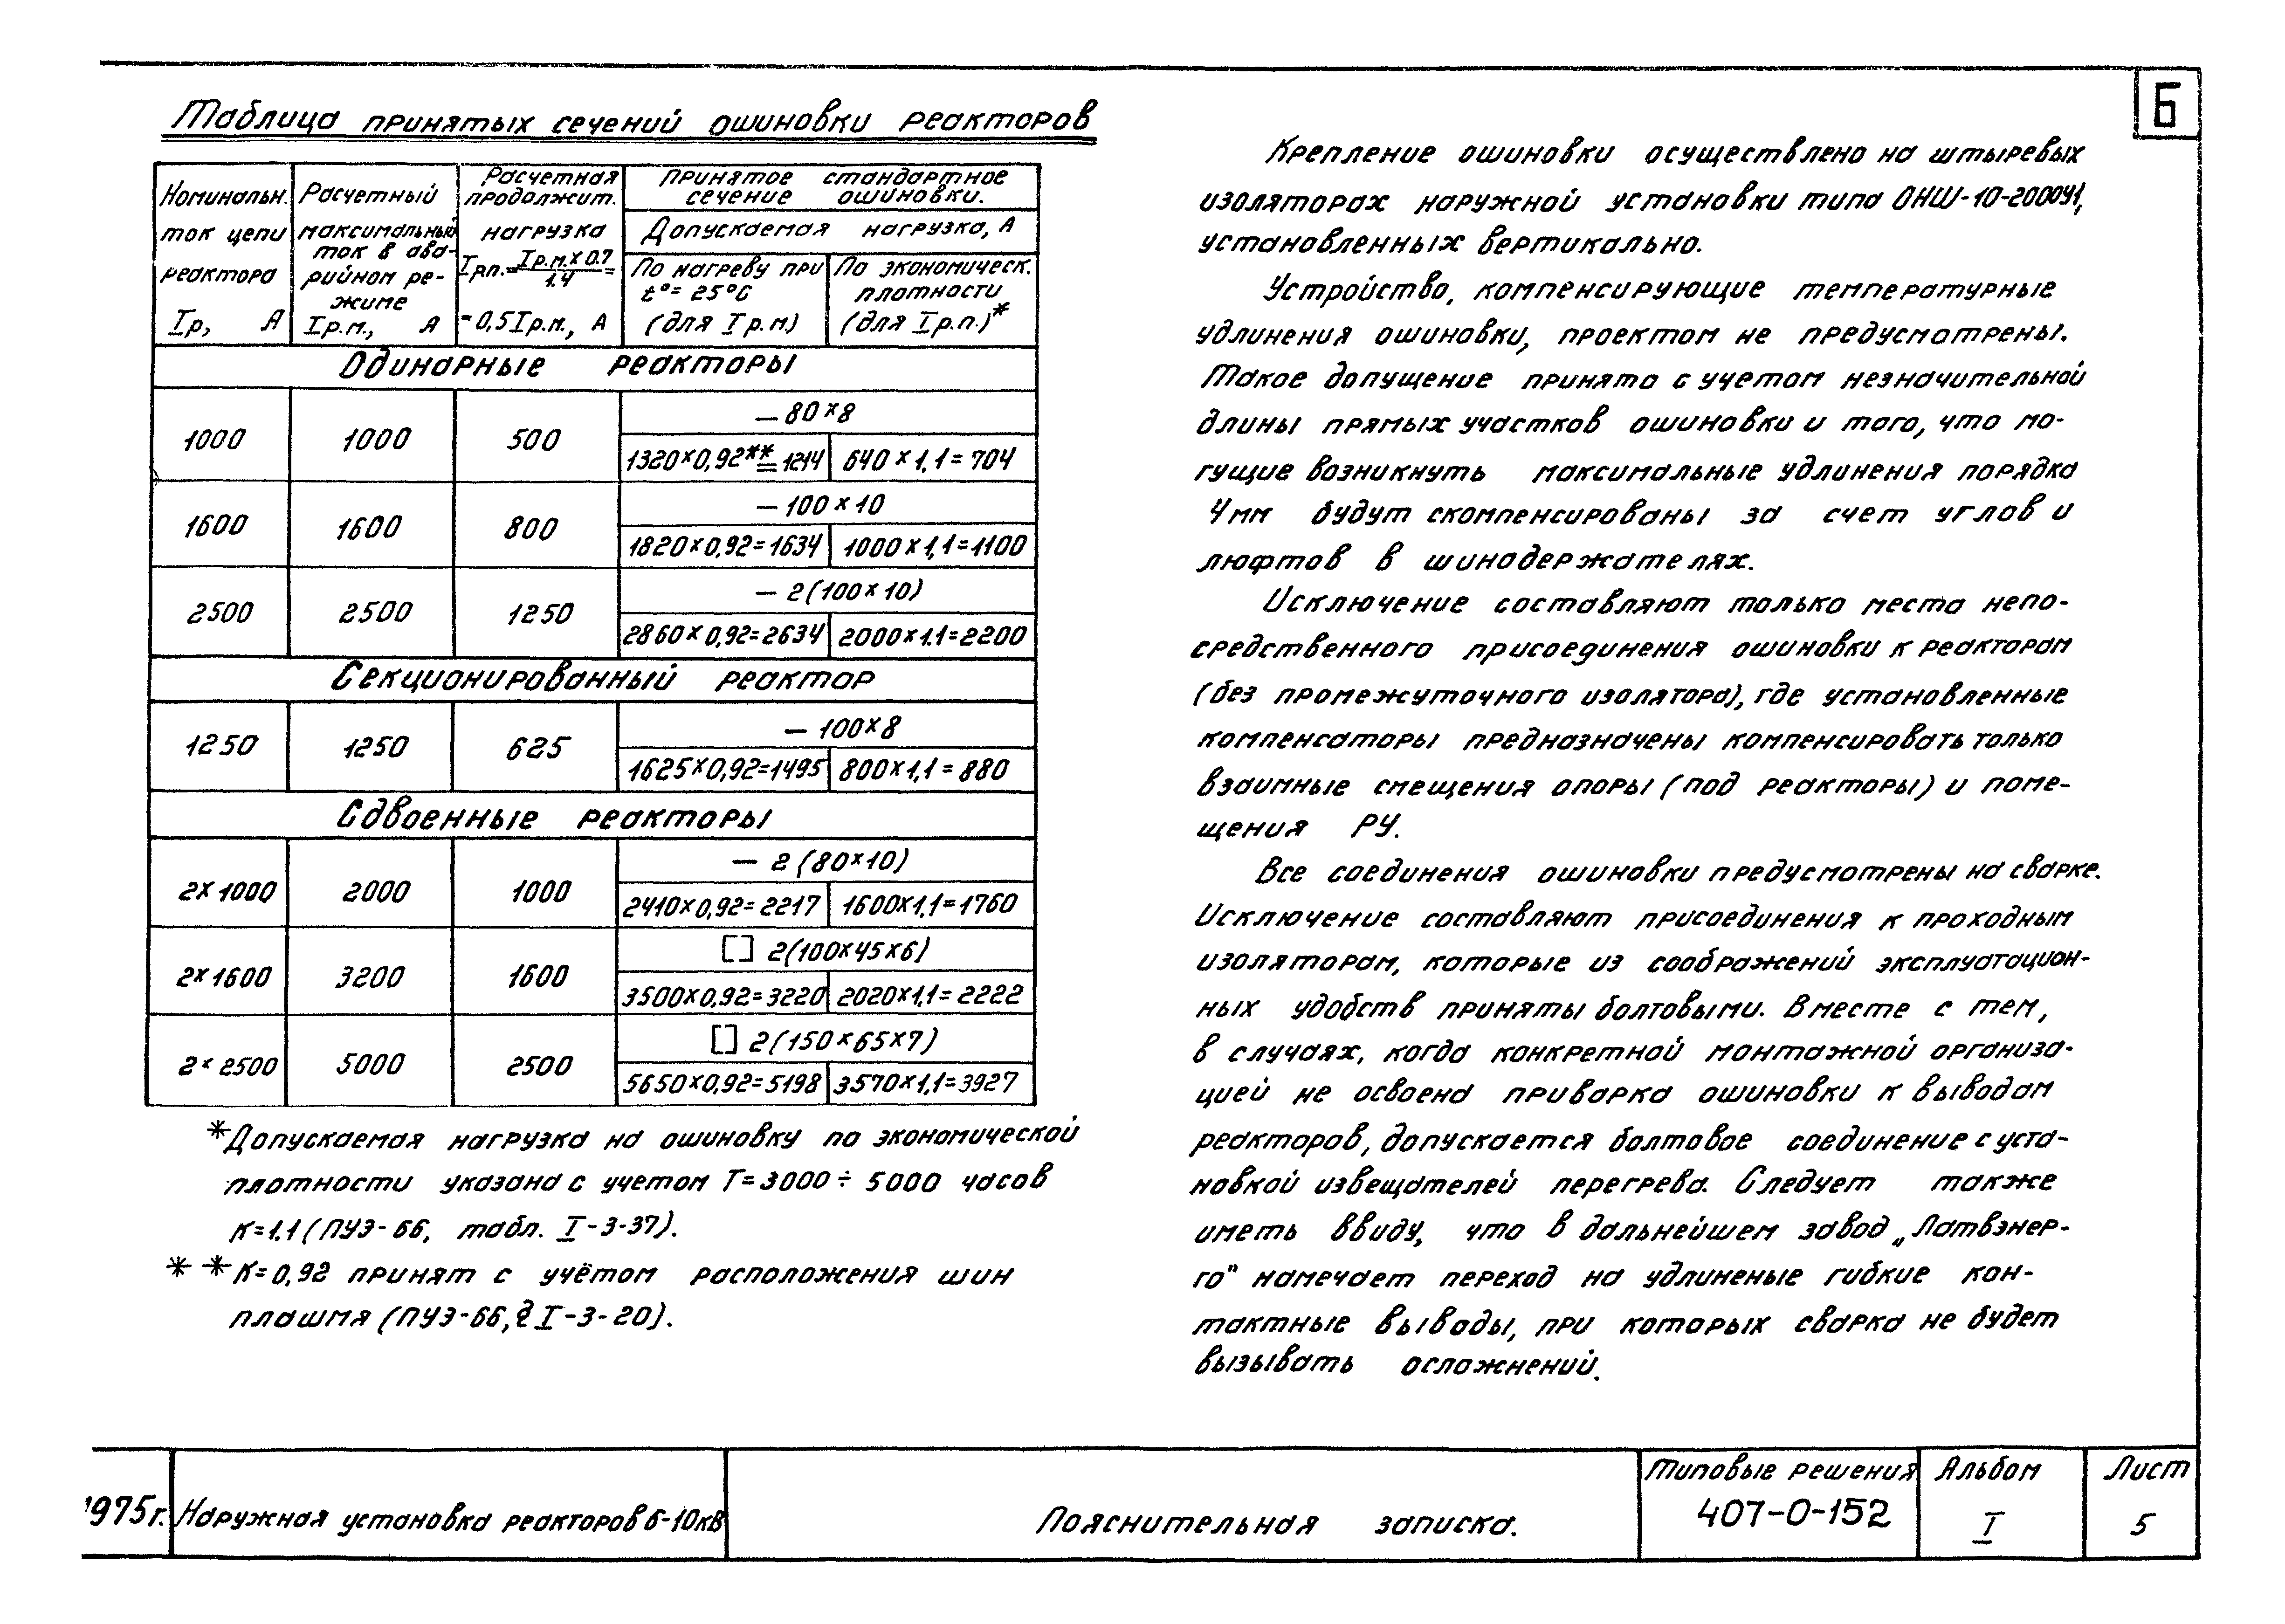 6
Таблица принятых сечений ошиновки реакторов
Номинальн. ток цепи реактора Iр, А
Расчетный максимальный ток в аварийном режиме Iр.м., А
Расчетная продолжит. нагрузка Iрп.=Iр.м.×0.7/1.4= =0,5Iр.м., А
Принятое стандартное сечение ошиновки.
Допускаемая нагрузка, А
По нагреву при t°=25°С (для Iр.м)
По экономическ. плотности (для Iр.п.)*
Одинарные реакторы
— 80×8
1000 1000 500 1320×0,92**=1214 640×1,1=704
— 100×10
1600 1600 800 1820×0,92=1634 1000×1,1=1100
— 2(100×10)
2500 2500 1250 2860×0,92=2634 2000×1.1=2200
Секционированный реактор
— 100×8
1250 1250 625 1625×0,92=1495 800×1,1=880
Сдвоенные реакторы
— 2(80×10)
2×1000 2000 1000 2410×0,92=2217 1600×1,1=1760
[] 2(100×45×6)
2×1600 3200 1600 3500×0,92=3220 2020×1,1=2222
[] 2(150×65×7)
2×2500 5000 2500 5650×0,92=5198 3570×1,1=3927
*Допускаемая нагрузка на ошиновку по экономической
плотности указана с учетом Т=3000÷5000 часов
К=1.1 (ПУЭ-66, табл. I-3-37).
**К=0,92 принят с учётом расположения шин
плашмя (ПУЭ-66, § I-3-20).
Крепление ошиновки осуществлено на штыревых
изоляторах наружной установки типа ОНШ-10-2000У1,
установленных вертикально.
Устройство, компенсирующие температурные
удлинения ошиновки, проектом не предусмотрены.
Такое допущение принято с учетом незначительной
длины прямых участков ошиновки и того, что мо-
гущие возникнуть максимальные удлинения порядка
4мм будут скомпенсированы за счет углов и
люфтов в шинодержателях.
Исключение составляют только места непо-
средственного присоединения ошиновки к реакторам
(без промежуточного изолятора), где установленные
компенсаторы предназначены компенсировать только
взаимные смещения опоры (под реакторы) и поме-
щения РУ.
Все соединения ошиновки предусмотрены на сварке.
Исключение составляют присоединения к проходным
изоляторам, которые из соображений эксплуатацион-
ных удобств приняты болтовыми. Вместе с тем,
в случаях, когда конкретной монтажной организа-
цией не освоена приварка ошиновки к выводам
реакторов, допускается болтовое соединение с уста-
новкой извещателей перегрева. Следует также
иметь ввиду, что в дальнейшем завод „Латвэнер-
го" намечает переход на удлиненые гибкие кон-
тактные выводы, при которых сварка не будет
вызывать осложнений.
1975г. Наружная установка реакторов 6-10кВ Пояснительная записка. Типовые решения 407-0-152 Альбом I Лист 5